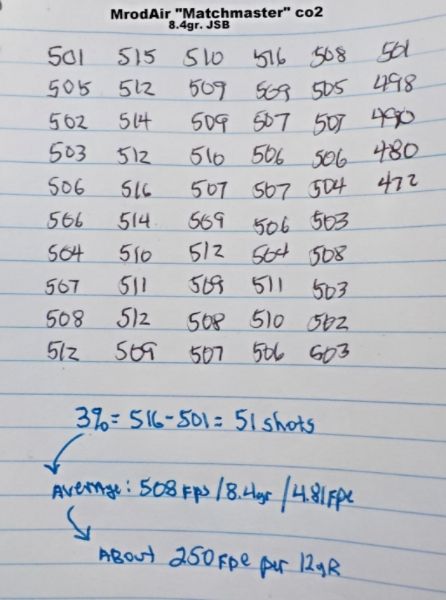 MrodAir "Matchmaster" co2
8.4gr. JSB
501 515 510 516 508 501
505 512 509 509 505 498
502 514 509 507 507 490
503 512 510 506 506 480
506 516 507 507 504 472
506 514 509 506 503
504 510 512 504 508
507 511 509 511 503
508 512 508 510 502
512 509 507 506 503
3% = 516-501 = 51 shots
Average: 508 FPS / 8.4gr / 4.81 FPE
About 250 FPE per 12gR